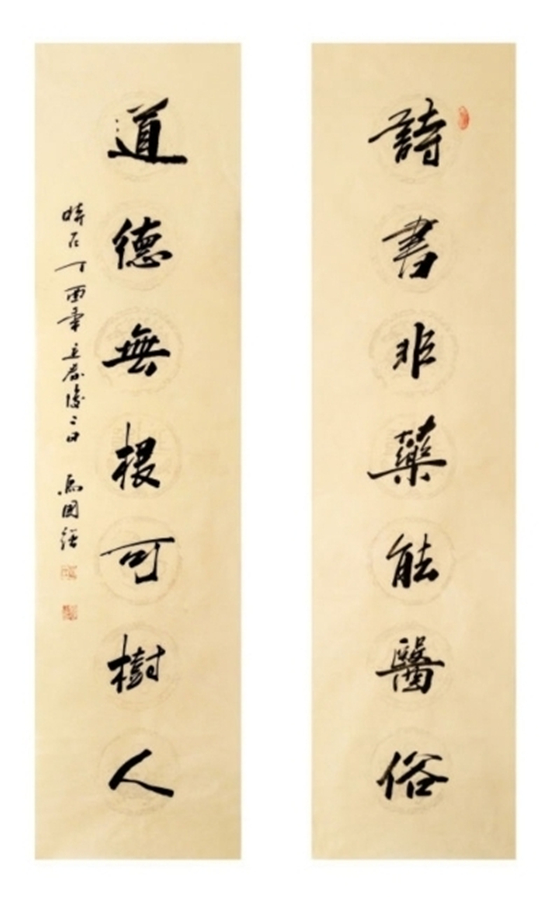 詩書非藥能醫俗
道德無根可樹人
時在丁酉年立春後二日
馬國強